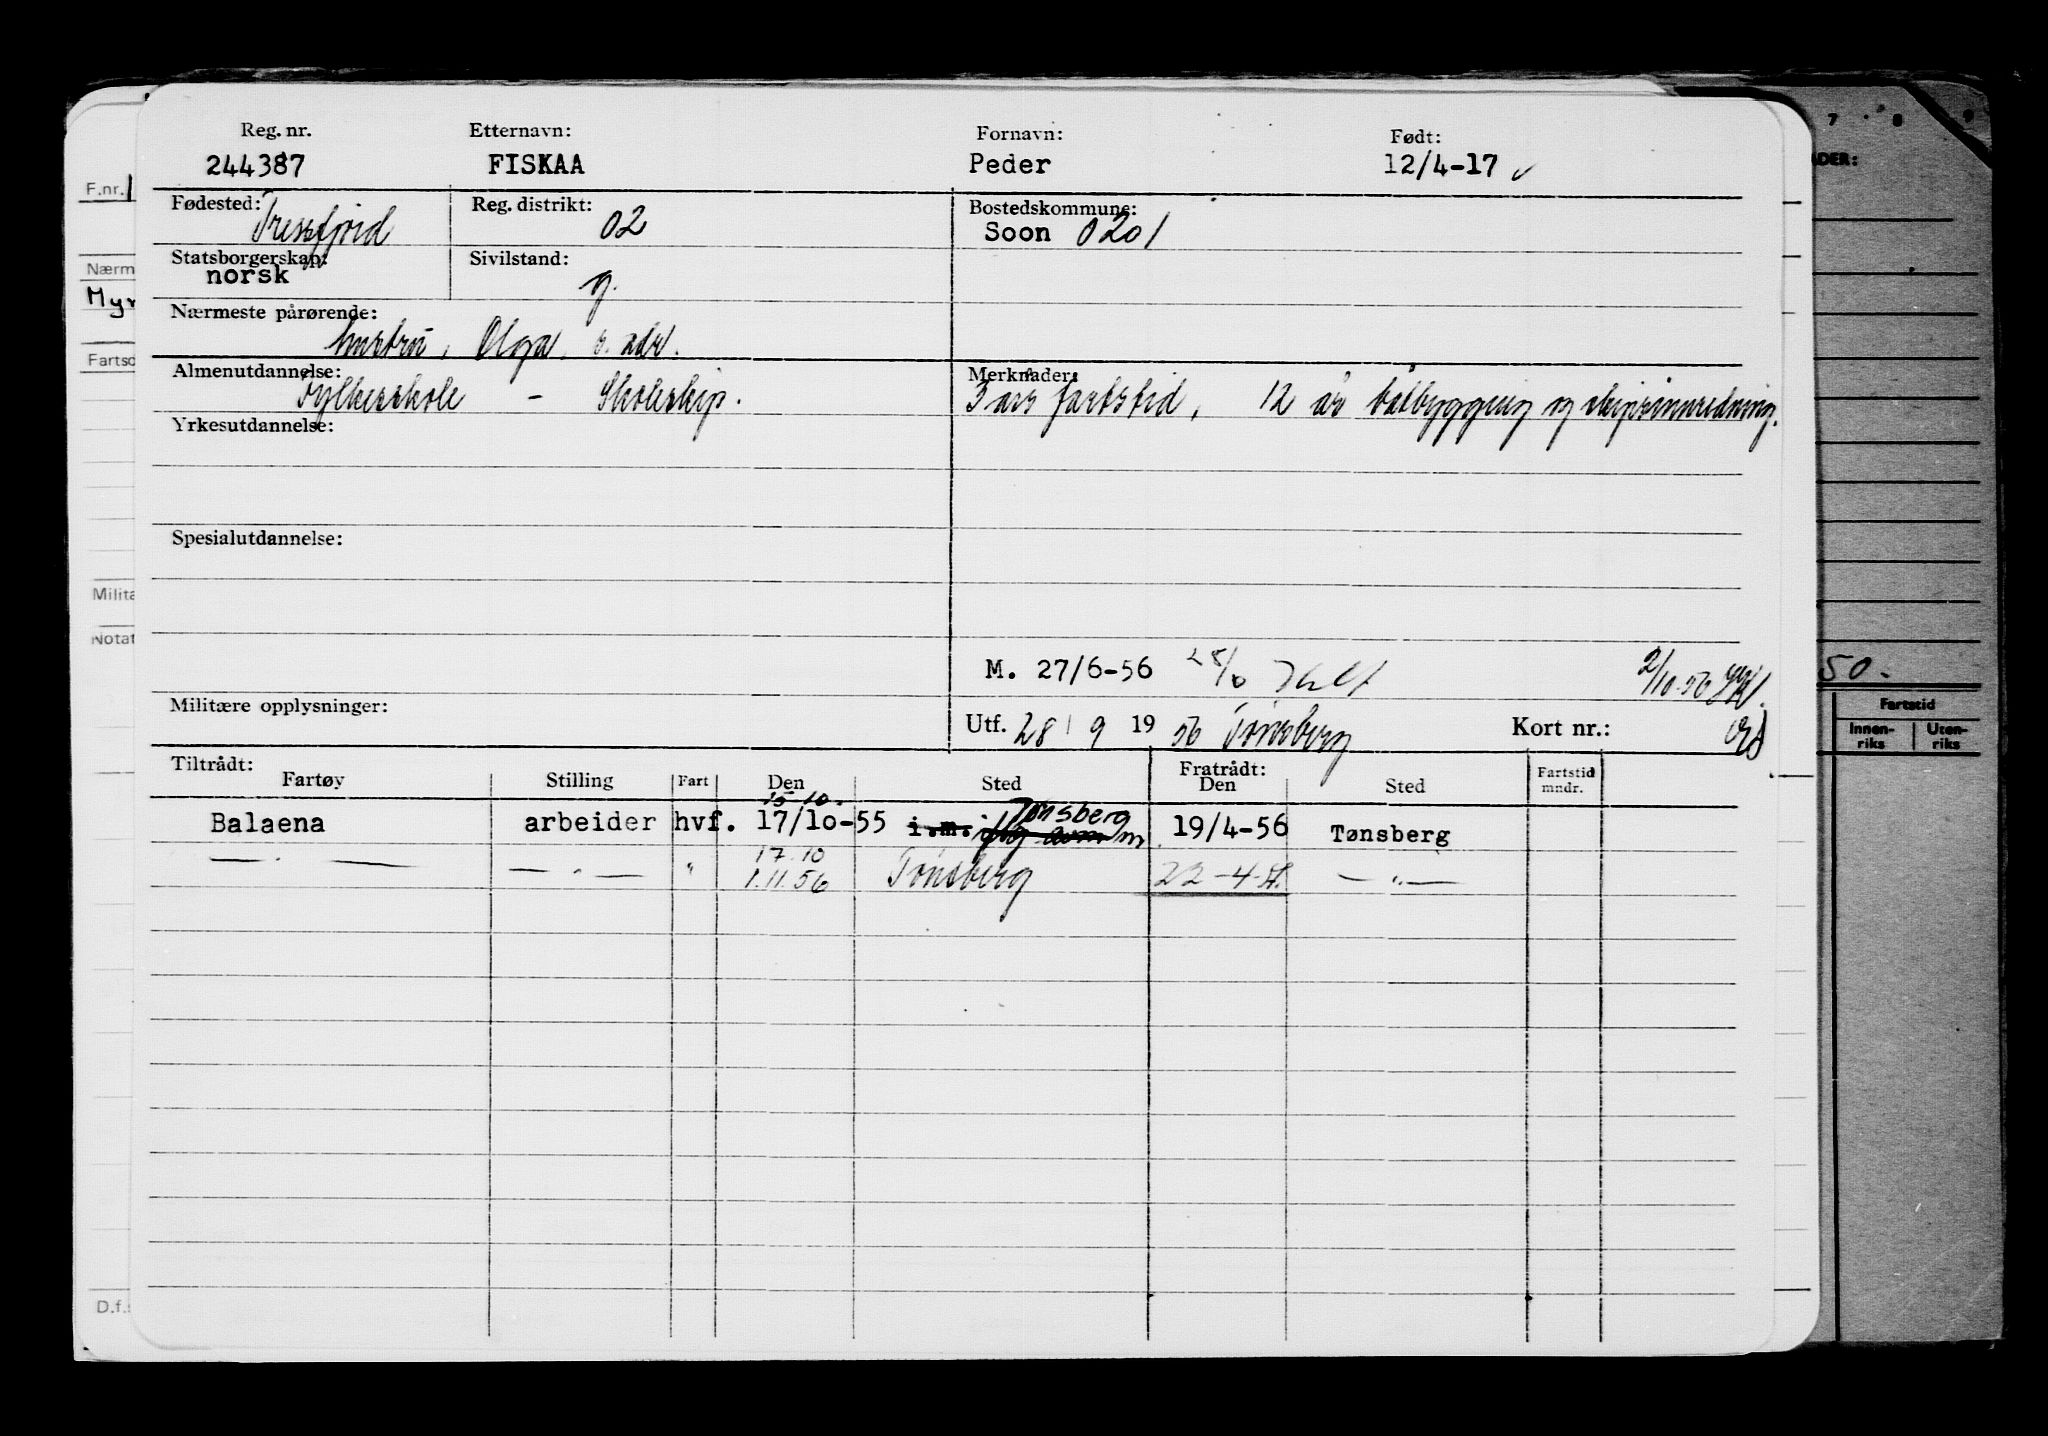 Reg. nr. Etternavn: Fornavn: Født:
244387 FISKAA Peder 12/4-17
Fødested: Reg. distrikt: Bostedskommune:
Tresfjord 02 Soon 0201
Statsborgerskap: Sivilstand:
norsk g.
Nærmeste pårørende:
hustru, Olga, s. adr.
Almenutdannelse: Merknader:
Fylkesskole - Skoleskip. 3 års fartstid, 12 år båtbygging og skipsinnredning.
Yrkesutdannelse:
Spesialutdannelse:
M. 27/6-56 2/10-56
Militære opplysninger: Utf. 28/9 1956 Tönsberg Kort nr.:
Tiltrådt: Fratrådt:
Fartøy Stilling Fart Den Sted Den Sted Fartstid mndr.
15-10- Tønsberg
Balaena arbeider hvf. 17/10-55 i.m. 19/4-56 Tønsberg
17.10
—"— —"— " 1.11.56 Tönsberg 22-4- —"—
F.nr.
Nærm
Myr
Fartso
Milita
Notat
D.f.
7 8 9
ADER:
50.
Fartstid
Innen-riks Uten-riks